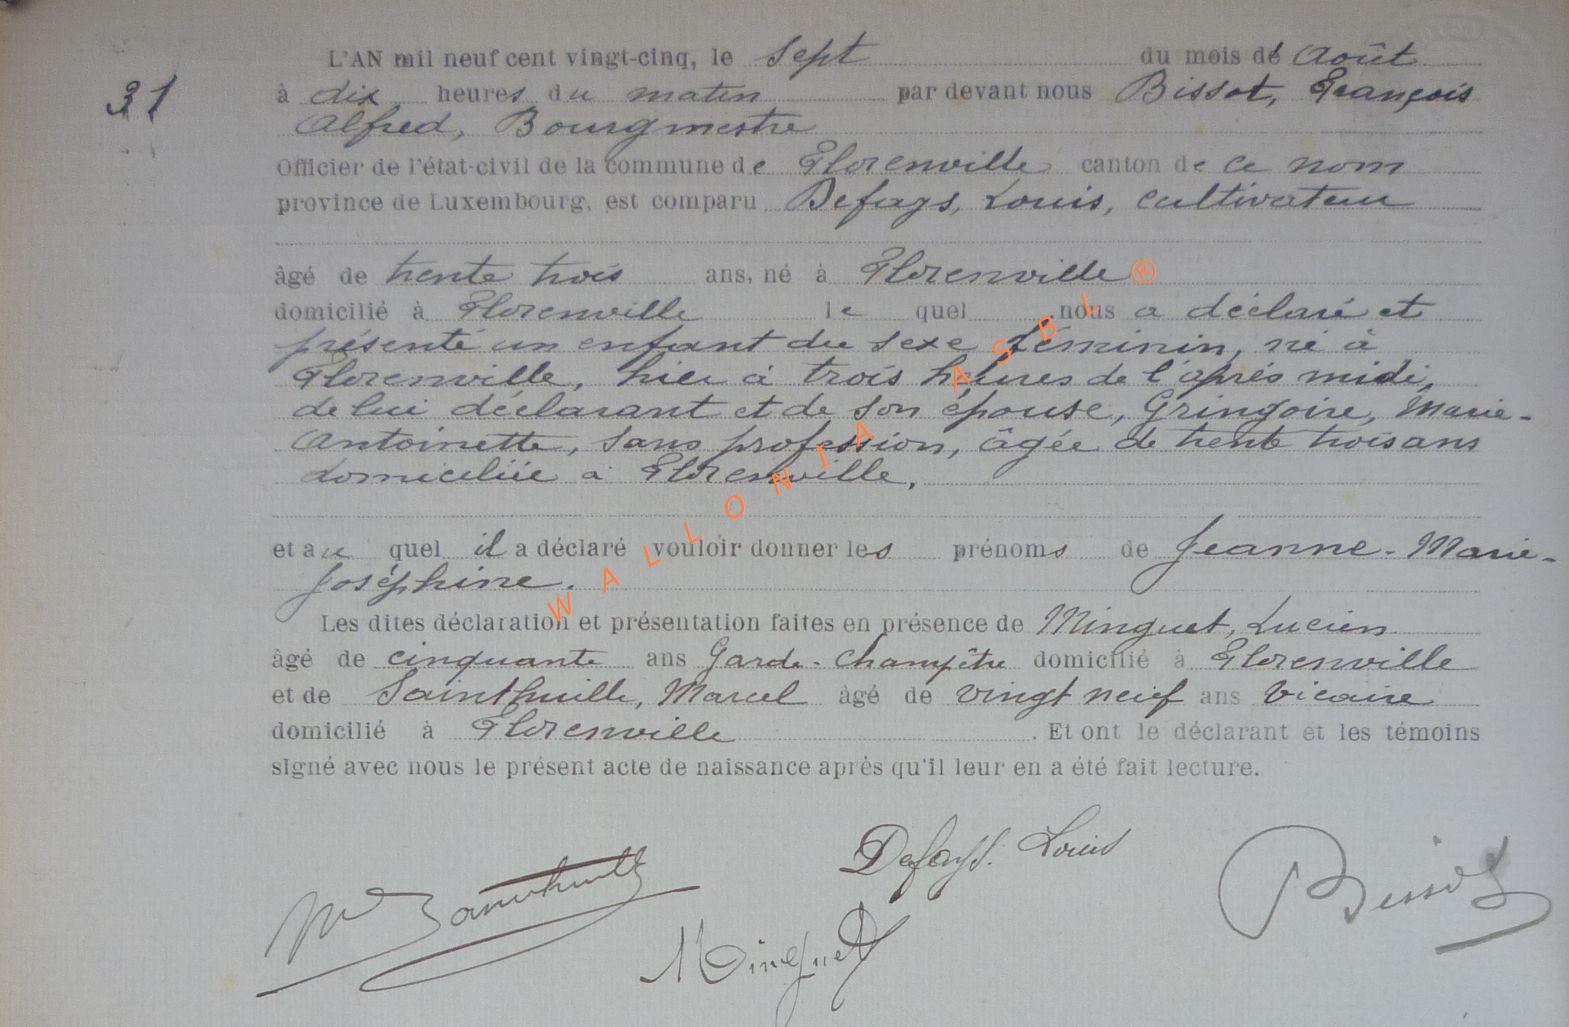 L'AN mil neuf cent vingt-cinq, le sept du mois de Août
31
à dix heures du matin par devant nous Bissot, François
Alfred, Bourgmestre
Officier de l'état-civil de la commune de Florenville canton de ce nom
province de Luxembourg, est comparu Defays, Louis, cultivateur
âgé de trente trois ans, né à Florenville
domicilié à Florenville le quel nous a déclaré et
présenté un enfant du sexe féminin, né à
Florenville, hier à trois heures de l'après midi,
de lui déclarant et de son épouse, Gringoire, Marie-
Antoinette, sans profession, âgée de trente trois ans
domiciliée à Florenville.
et au quel il a déclaré vouloir donner les prénoms de Jeanne-Marie-
Joséphine.
Les dites déclaration et présentation faites en présence de Minguet, Lucien
âgé de cinquante ans Garde-Champêtre domicilié à Florenville
et de Sainthuille, Marcel âgé de vingt neuf ans Vicaire
domicilié à Florenville . Et ont le déclarant et les témoins
signé avec nous le présent acte de naissance après qu'il leur en a été fait lecture.
Defays. Louis
Bissot
Minguet
WALLONIA ASBL ®